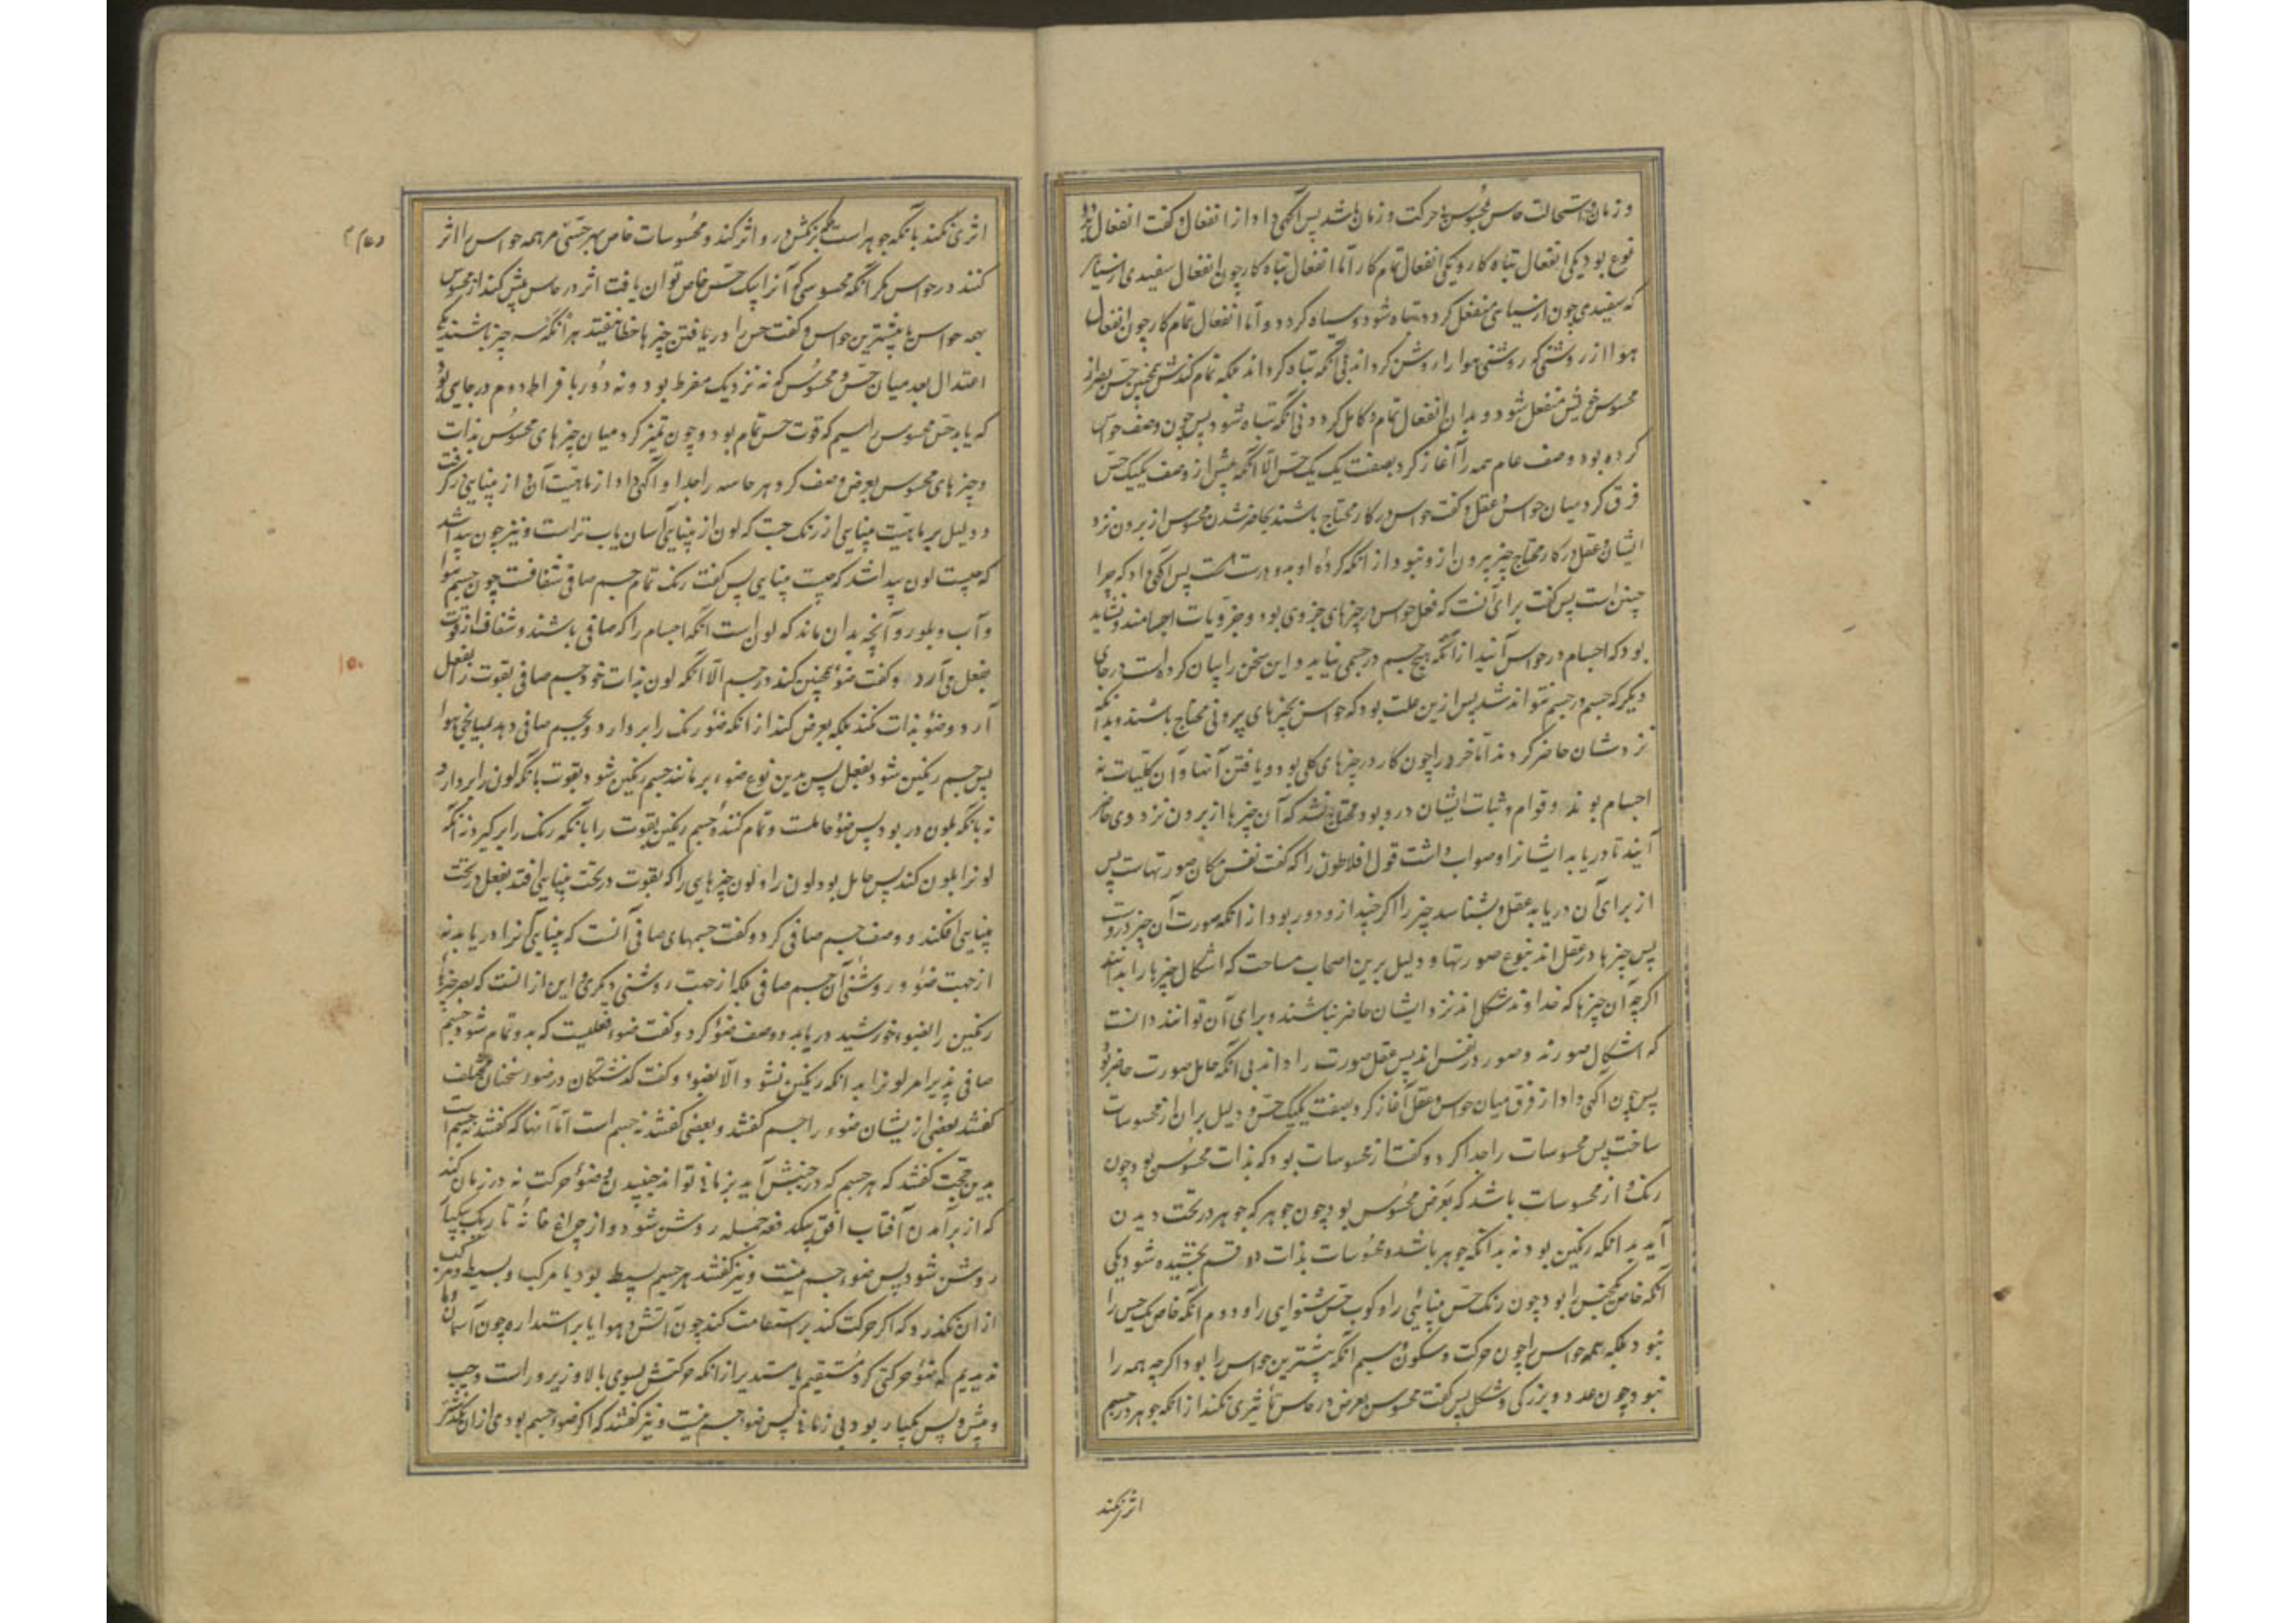 و زمان و استحالت حاس بمحسوس نه بحرکت و زمان باشد پس آگهی داد از انفعال و گفت انفعال دو
نوع بود یکی انفعال تباه کار و یکی انفعال تمام کار اما انفعال تباه کار چون انفعال سفیدی از سیاهی
که سفیدی چون از سیاهی منفعل گردد تباه شود و سیاه گردد و اما انفعال تمام کار چون انفعال
هوا از روشنی که روشنی هوا را روشن گرداند بی آنکه تباه گرداند بلکه تمام کندش همچنین حس بصر از
محسوس خویش منفعل شود و بدان انفعال تمام و کامل گردد بی آنکه تباه شود پس چون وصف حواس
کرده بود وصف عام همه را آغاز کرد بصفت یک یک حس الا آنکه پیش از وصف یکیک حس
فرق کرد میان حواس و عقل و گفت حواس در کار محتاج باشند بحاضر شدن محسوس از برون نزد
ایشان و عقل در کار محتاج چیز بیرون ازو نبود از آنکه کرده او بدو درست پس آگهی داد که چرا
چنین است پس گفت برای آنست که فعل حواس در چیزهای جزوی بود و جزویات اجسامند و نشاید
بود که اجسام در حواس آیند از آنکه هیچ جسم در جسمی نیاید و این سخن را بیان کرده است در جای
دیگر که جسم در جسم نتواند شد پس ازین علت بود که حواس بچیزهای بیرونی محتاج باشند و بدانکه
نزدشان حاضر گردند اما خرد را چون کار در چیزهای کلی بود و یافتن آنها و آن کلیات نه
اجسام بوند و قوام و ثبات ایشان درو بود محتاج نشد که آن چیزها از برون نزد وی حاضر
آیند تا دریابد ایشانرا و صواب داشت قول افلاطون را که گفت نفس مکان صورتهاست پس
از برای آن دریابد عقل و بشناسد چیز را اگر چند ازو دور بود از آنکه صورت آن چیز دروست
پس چیزها در عقل اند بنوع صورتها و دلیل برین اصحاب مساحت که اشکال چیزها را بدانند
اگر چه آن چیزها که خداوند شکل اند نزد ایشان حاضر نباشند و برای آن توانند دانست
که اشکال صورند و صور در نفس اند پس عقل صورت را داند بی آنکه حامل صورت حاضر بود
پس چون آگهی داد از فرق میان حواس و عقل آغاز کرد بصفت یکیک حس و دلیل بران از محسوسات
ساخت پس محسوسات را جدا کرد و گفت از محسوسات بود که بذات محسوس بود چون
رنگ و از محسوسات باشد که بعرض محسوس بود چون جوهر که جوهر در تحت دیدن
آید بدانکه رنگین بود نه بدانکه جوهر باشد و محسوسات بذات دو قسم بخشیده شود یکی
آنکه خاص یکحس را بود چون رنگ حس بینائی را و کوب حس شنوایی را و دوم آنکه خاص یک حس را
نبود بلکه همه حواس را چون حرکت و سکون و سیم آنکه بیشترین حواس را بود اگر چه همه را
نبود چون عدد و بزرگی و شکل پس گفت محسوس بعرض در حاس تأثیری نکند از آنکه جوهر در جسم
اثر نکند
اثری نکند بآنکه جوهر است بلکه برنگش درو اثر کند و محسوسات خاص بهر حسی نه همه حواس را اثر
کنند در حواس مگر آنکه محسوسی که آنرا بیک حس خاص توان یافت اثر در حاس بیش کند از محسوس
همه حواس یا بیشترین حواس و گفت حس را دریافتن چیزها خطا نیفتد هر آنگه سه چیز باشند یکی
اعتدال بعد میان حس و محسوس که نه نزدیک مفرط بود و نه دور بافراط دوم در جایی بود
که یابد حس محسوس را سیم که قوت حس تمام بود و چون تمییز کرد میان چیزهای محسوس بذات
و چیزهای محسوس بعرض وصف کرد هر حاسه را جدا و آگهی داد از ماهیت آن و از بینایی درگرفت
و دلیل بر ماهیت بینایی از رنگ جست که لون از بینایی آسان یاب تر است و نیز چون پیدا شد
که چیست لون پیدا شد که چیست بینایی پس گفت رنگ تمام جسم صافی شفافست چون جسم هوا
و آب و بلور و آنچه بدان ماند که لون است آنکه اجسام را که صافی باشند و شفاف از قوت
بفعل می آرد و گفت ضوء همچنین کند در جسم الا آنکه لون بذات خود جسم صافی بقوت را بفعل
آرد و ضوء بذات نکند بلکه بعرض کند از آنکه ضوء رنگ را بردارد و بجسم صافی دهد بمیانجی هوا
پس جسم رنگین شود بفعل پس بدین نوع ضوء بر مانند جسم رنگین شود بقوت بآنکه لون را بردارد
نه بآنکه بلون در بود پس ضوء حاملست و تمام کننده جسم رنگین بقوت را بآنکه رنگ را برگیرد نه آنکه
لونرا بلون کند پس حامل بود لون را و لون چیزهایی را که بقوت در تحت بینایی افتد بفعل در تحت
بینایی افکند و وصف جسم صافی کرد و گفت جسمهای صافی آنست که بینایی آنرا دریابد نه
از جهت ضوء و روشنی آن جسم صافی بلکه از جهت روشنی دیگری و این از آنست که بصر چیزهای
رنگین را بضوء خورشید دریابد و وصف ضوء کرد و گفت ضوء فعلیست که بدو تمام شود جسم
صافی پذیرا مر لونرا بدانکه رنگین نشود الا بضوء و گفت گذشتگان در ضوء سخنان مختلف
گفتند بعضی ازیشان ضوء را جسم گفتند و بعضی گفتند نه جسم است اما آنها که گفتند نه جسم است
بدین حجت گفتند که هر جسم که در جنبش آید بزمانی تواند جنبیدن و ضوء حرکت نه در زمان کند
که از برآمدن آفتاب افق بیکدفعه جمله روشن شود و از چراغ خانه تاریک بیکبار
روشن شود پس ضوء جسم نیست و نیز گفتند هر جسم بسیط بود یا مرکب و بسیط و مرکب
از آن نگذرد که اگر حرکت کند بر استقامت کند چون آتش و هوا یا بر استداره چون آسمان و ما
ندیدیم که ضوء حرکتی کرد مستقیم یا مستدیر از آنکه حرکتش بسوی بالا و زیر و راست و چپ
و پیش و پس یکبار بود بی زمانی پس ضوء جسم نیست و نیز گفتند که اگر ضوء جسم بودی از آن نگذشتی